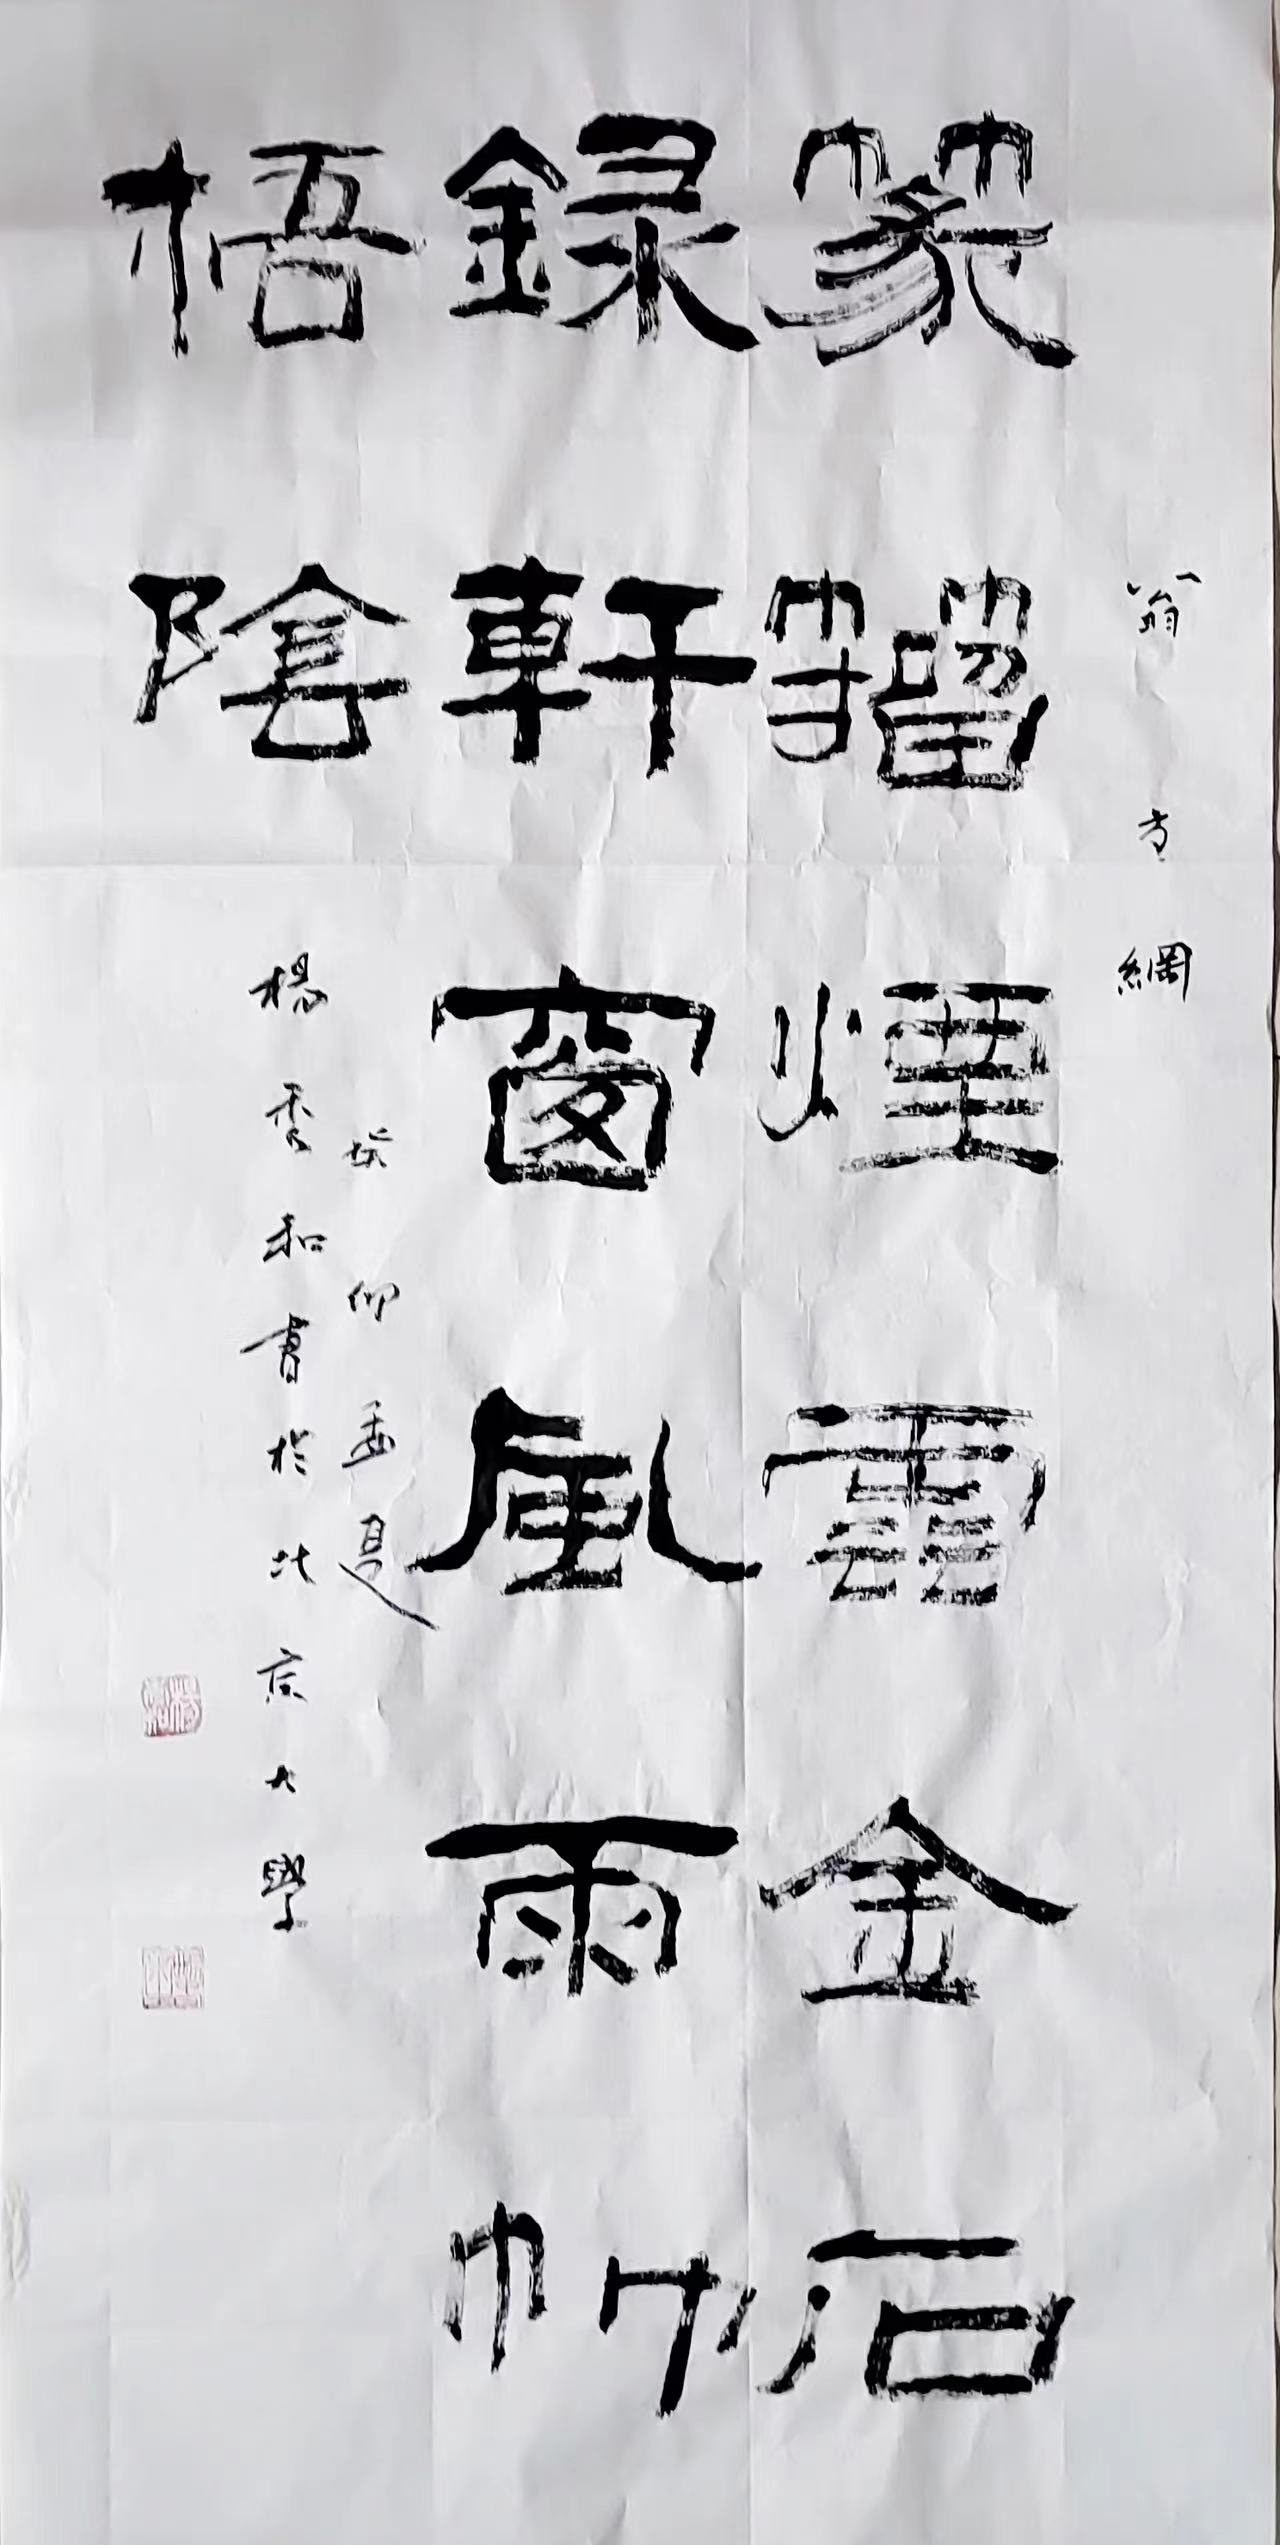 翁方綱
篆籀煙雲金石
録軒窗風雨竹
梧陰
仰
楊秀和書於北京大學